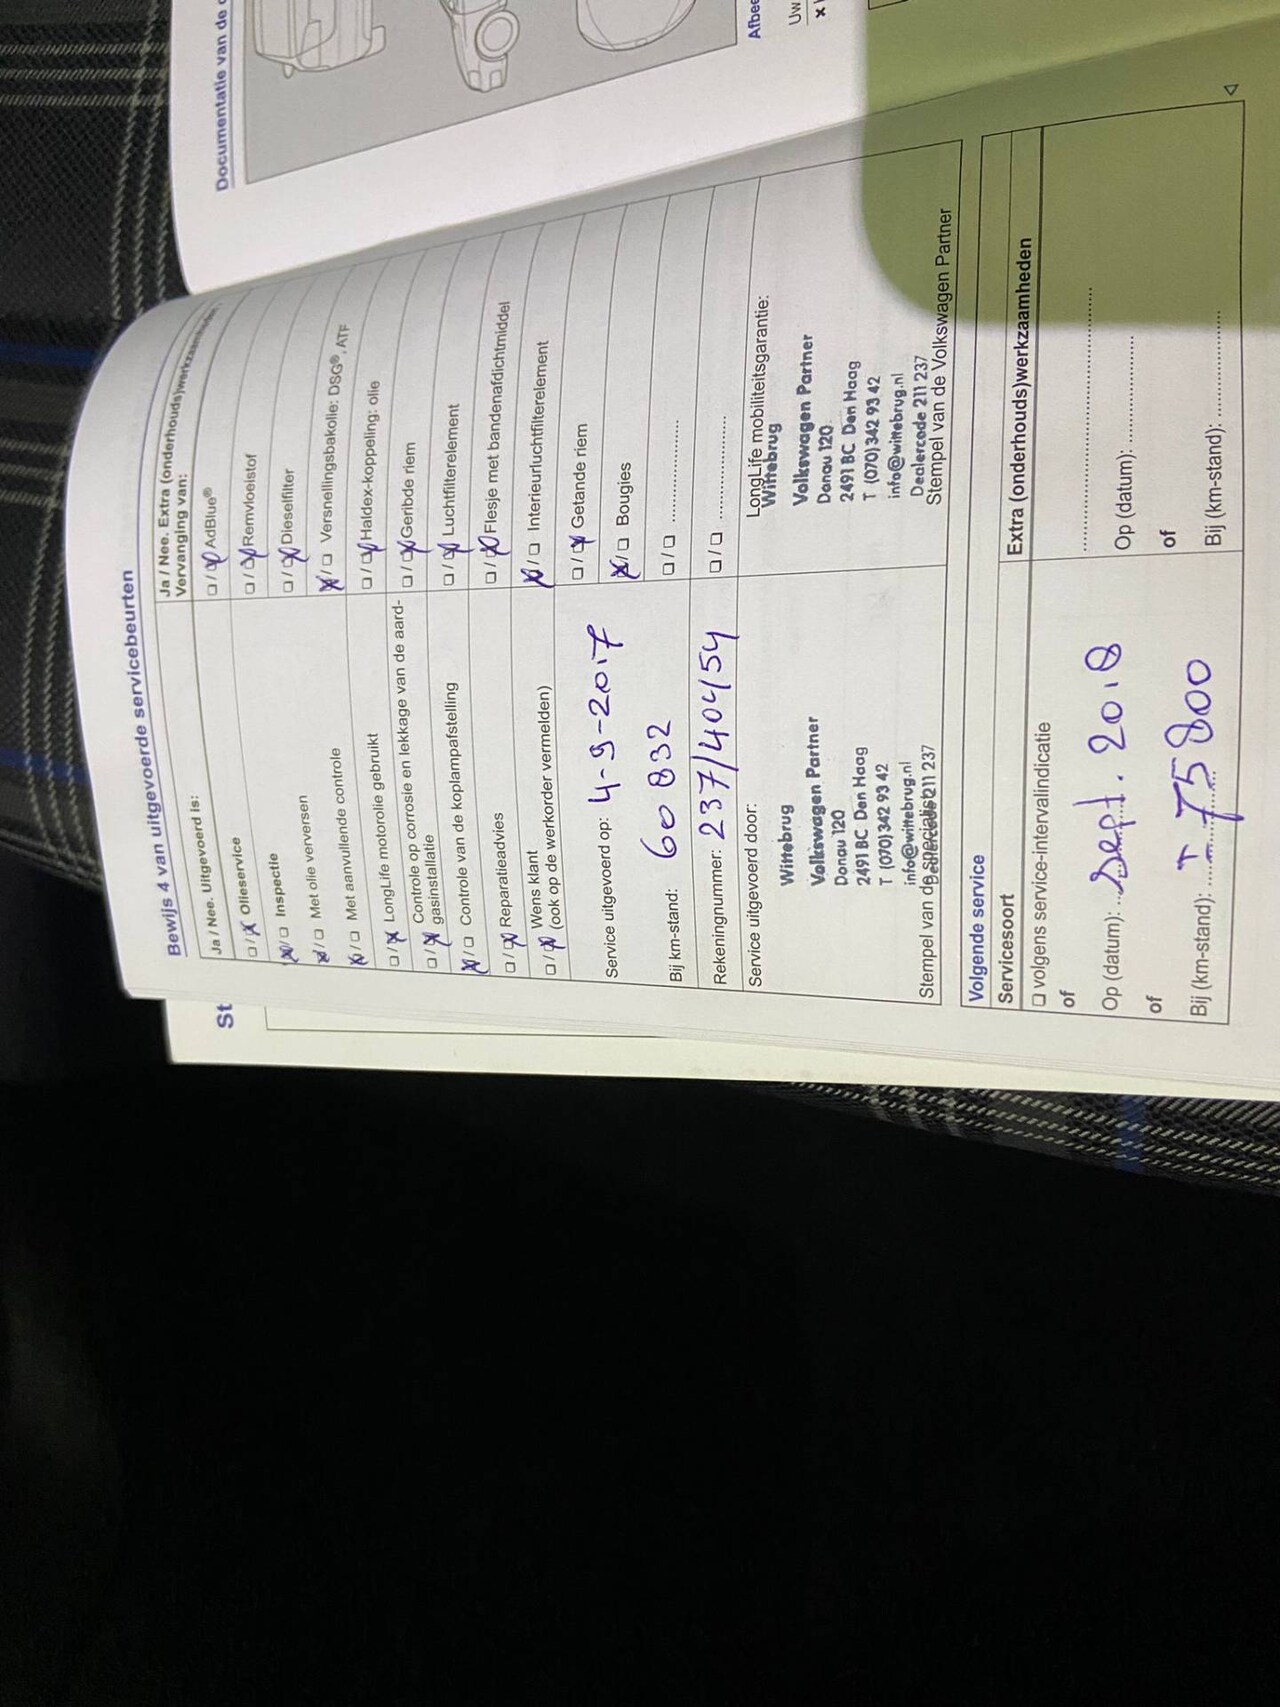 Documentatie van de
Bewijs 4 van uitgevoerde servicebeurten
Ja / Nee. Uitgevoerd is:
□ / ☒ Olieservice
☒ / □ Inspectie
☒ / □ Met olie verversen
☒ / □ Met aanvullende controle
□ / ☒ LongLife motorolie gebruikt
□ / ☒ Controle op corrosie en lekkage van de aard-
gasinstallatie
☒ / □ Controle van de koplampafstelling
□ / ☒ Reparatieadvies
□ / ☒ Wens klant
(ook op de werkorder vermelden)
Service uitgevoerd op: 4-9-2017
Bij km-stand: 60832
Rekeningnummer: 237/404154
Service uitgevoerd door:
Wittebrug
Volkswagen Partner
Donau 120
2491 BC Den Haag
T (070) 342 93 42
info@wittebrug.nl
Dealercode 211 237
Stempel van de specialist
Ja / Nee. Extra (onderhouds)werkzaamheden:
Vervanging van:
□ / ☒ AdBlue®
□ / ☒ Remvloeistof
□ / ☒ Dieselfilter
☒ / □ Versnellingsbakolie: DSG®, ATF
□ / ☒ Haldex-koppeling: olie
□ / ☒ Geribde riem
□ / ☒ Luchtfilterelement
□ / ☒ Flesje met bandenafdichtmiddel
☒ / □ Interieurluchtfilterelement
□ / ☒ Getande riem
☒ / □ Bougies
□ / □ ....................
□ / □ ....................
LongLife mobiliteitsgarantie:
Wittebrug
Volkswagen Partner
Donau 120
2491 BC Den Haag
T (070) 342 93 42
info@wittebrug.nl
Dealercode 211 237
Stempel van de Volkswagen Partner
Volgende service
Servicesoort
□ volgens service-intervalindicatie
of
Op (datum): sept. 2018
of
Bij (km-stand): 75800
Extra (onderhouds)werkzaamheden
Op (datum): ....................
of
Bij (km-stand): ....................
St
Uw